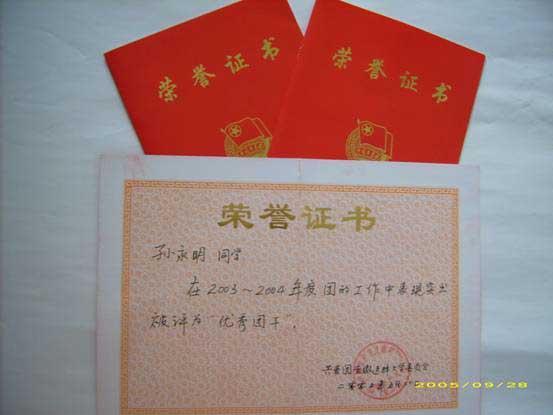 荣誉证书
荣誉证书
荣誉证书
孙永明 同学
在2003~2004年度团的工作中表现突出
被评为“优秀团干”。
2005/09/28